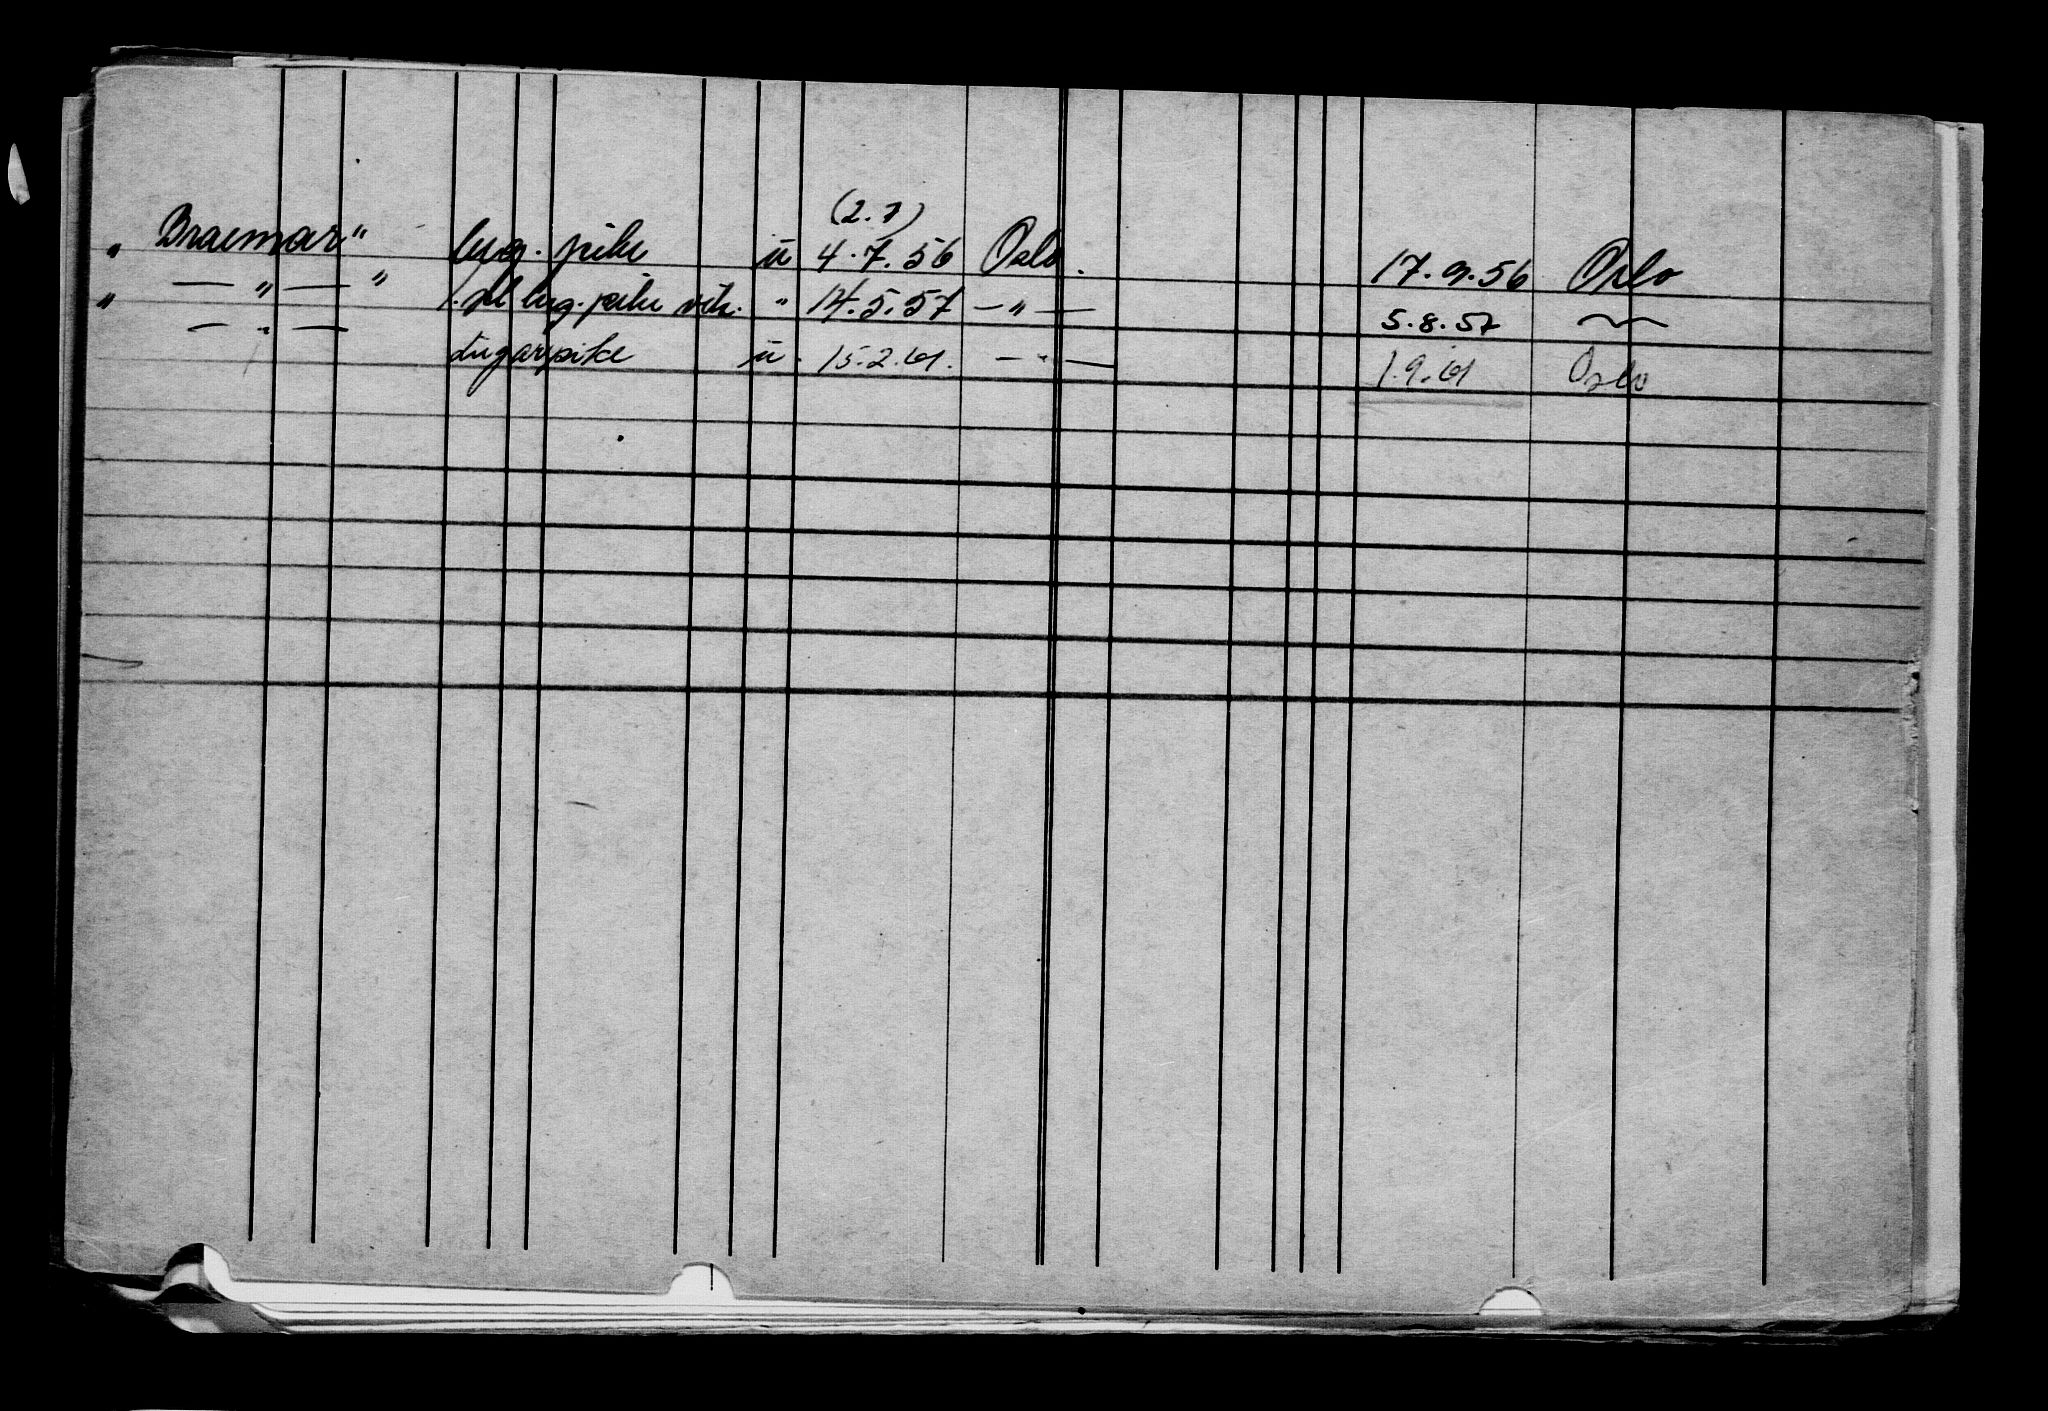 (2.7)
„ Braemar" lug. pike u 4.7.56 Oslo. 17.9.56 Oslo
„ — „ — " 1. kl lug. pike vik. " 14.5.57 — „ — 5.8.57
— „ — Lugarpike u. 15.2.61. — „ — 1.9.61 Oslo